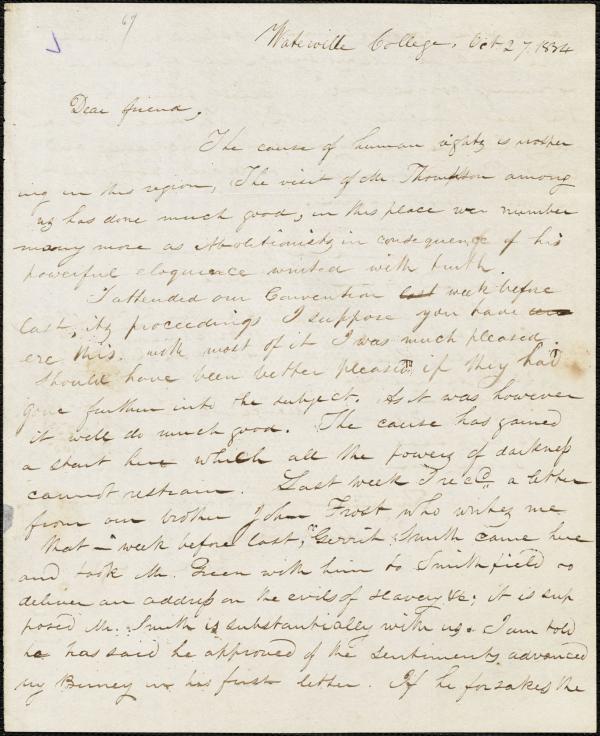 69
Waterville College, Oct 27, 1834
Dear friend,
The cause of human rights is prosper
ing in this region, The visit of Mr Thompson among
us has done much good, in this place we number
many more as Abolitionists in consequence of his
powerful eloquence united with truth.
I attended our Convention last week before
last, its proceedings I suppose you have
ere this. with most of it I was much pleased.
should have been better pleased, if they had
gone further into the subject. As it was however
it will do much good. The cause has gained
a start here which all the powers of darkness
cannot restrain. Last week I rec'd a letter
from our brother John Frost who writes me
that – "week before last, Gerrit Smith came here
and took Mr. Green with him to Smithfield to
deliver an address on the evils of slavery &c; it is sup
posed Mr. Smith is substantially with us. I am told
he has said he approved of the sentiments advanced
by Birney in his first letter. If he forsakes the